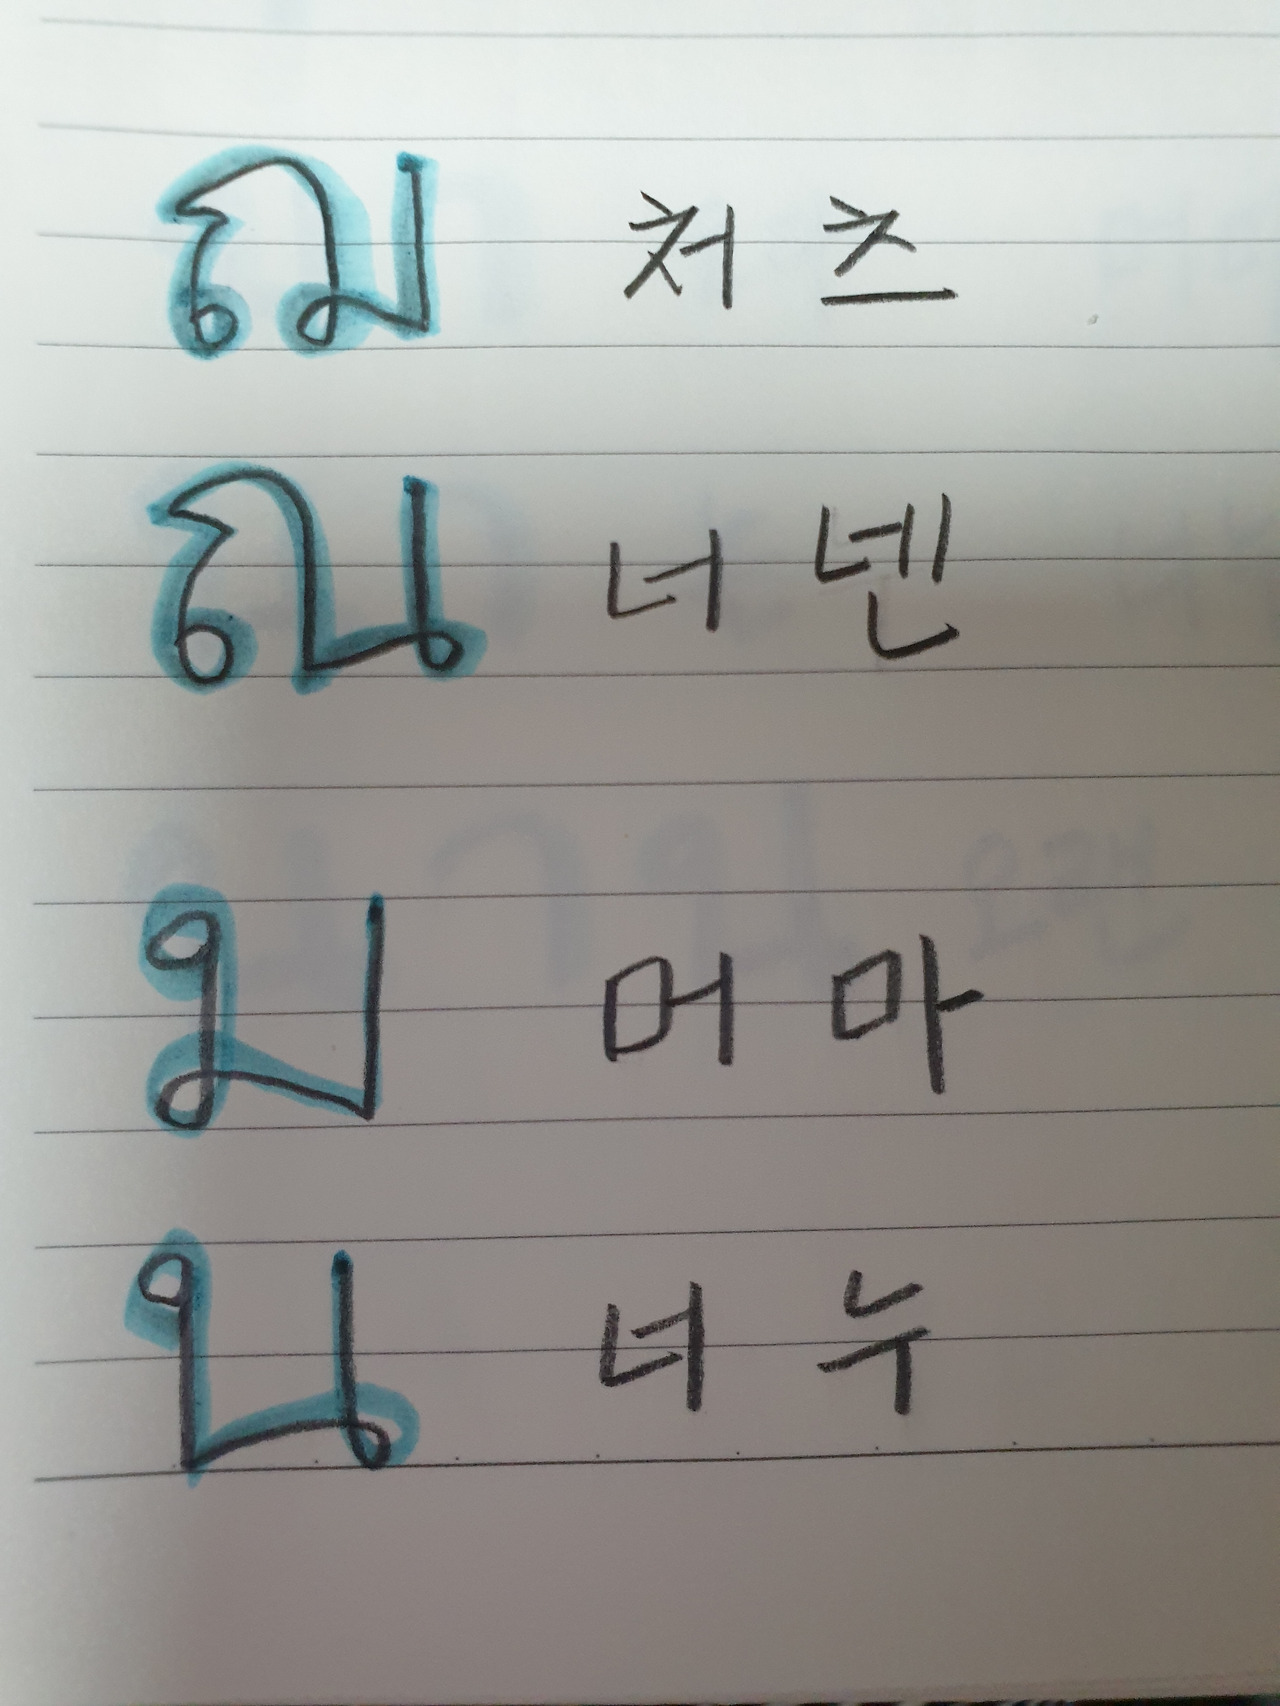 ฌ 처 츠
ณ 너 넨
ม 머 마
น 너 누